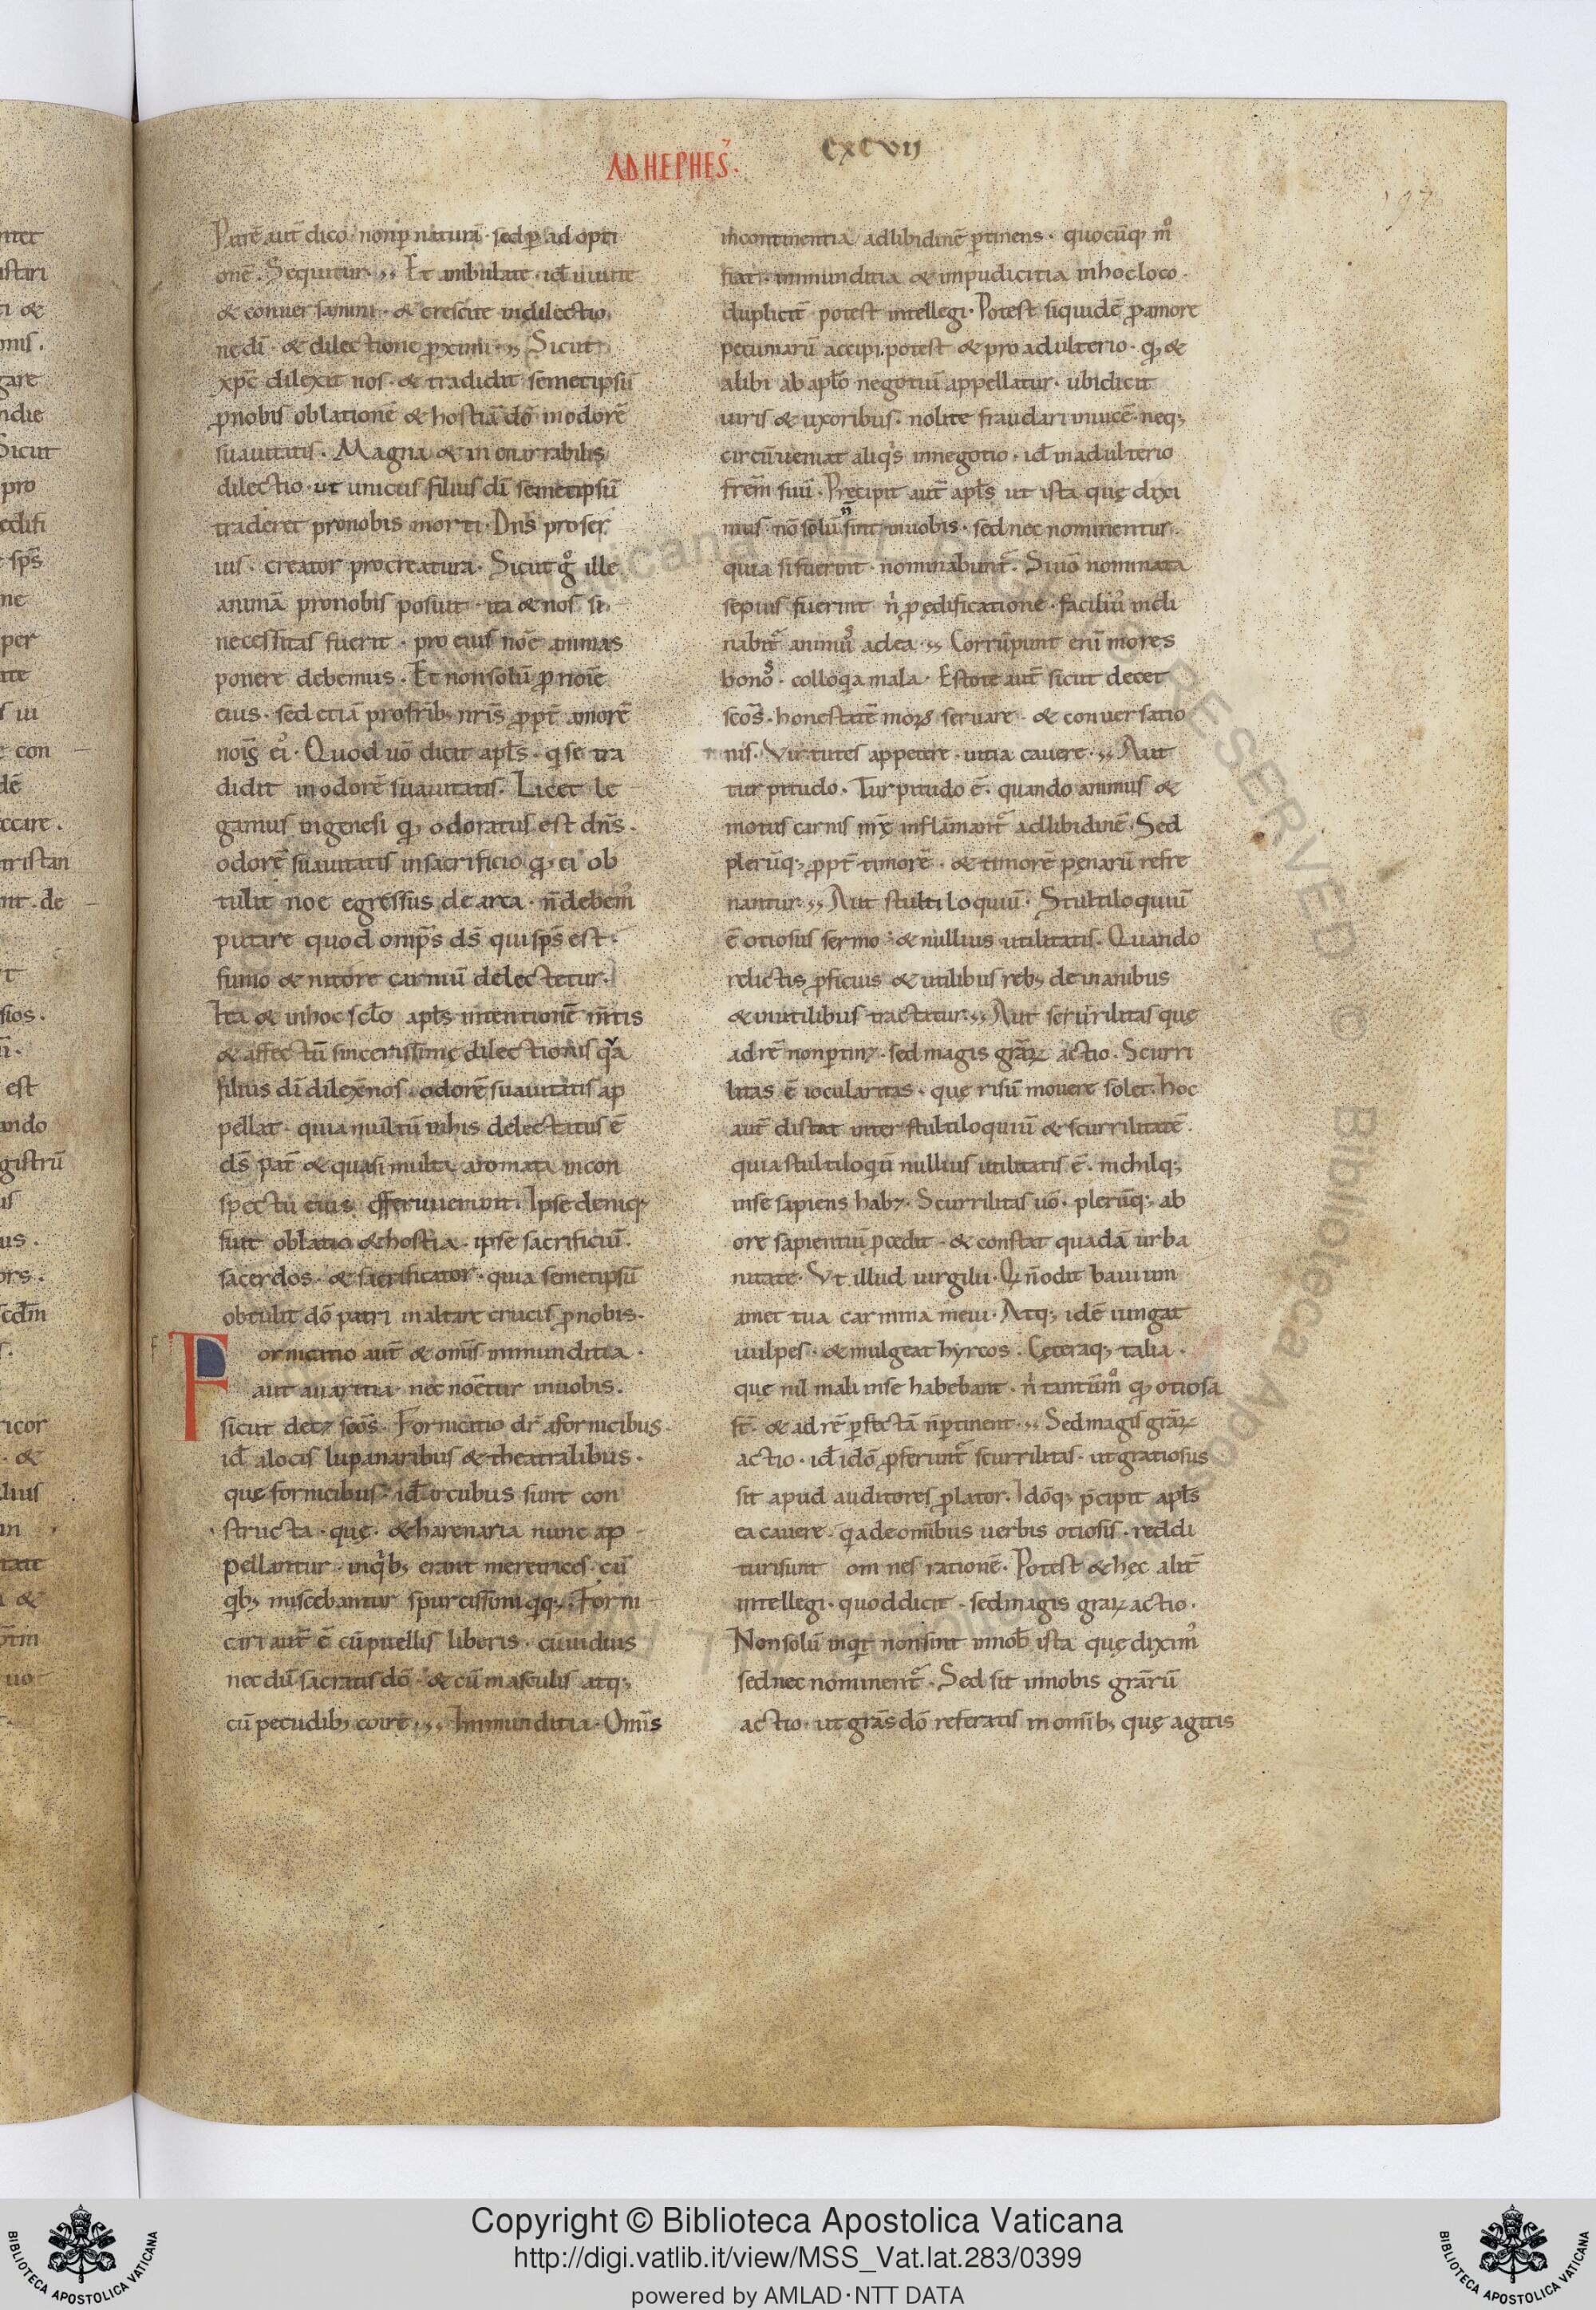 AD HEPHES̄.
CXCVII
197
Patrē aut̄ dico. non ꝑ naturā. sed ꝑ ad opti
onē. Sequitur. Et ambulate. id̄ uiuite
& conuersamini. & crescite in dilectio
ne dī. & dilectione ꝓximi. Sicut
xp̄c dilexit nos. & tradidit semetipsū
ꝓ nobis oblationē & hostiā dō in odorē
suauitatis. Magna & inenarrabilis
dilectio. ut unicus filius dī semetipsū
traderet pro nobis morti. Dn̄s pro ser
uis. creator pro creatura. Sicut gͦ ille
animā pro nobis posuit. ita & nos si
necessitas fuerit. pro eius nōe animas
ponere debemus. Et non solū ꝓ noīe
eius. sed etiā pro frīb; nr̄is ꝓpt̄ amorē
noīs ei᾽. Quod uō dicit apl̄s. q᷒ se tra
didit in odorē suauitatis. Licet le
gamus in genesi q᷒ odoratus est dn̄s.
odorē suauitatis in sacrificio q᷒ ei ob
tulit noe egressus de arca. n̄ debem᾽
putare quod omp̄s ds̄ qui sp̄s est.
fumo & nitore carniū delectetur.
Ita & in hoc sclō apl̄s intentionē m̄tis
& affectū sincerissimę dilectionis q̓a
filius dī dilex̄ nos. odorē suauitatis ap
pellat. quia multū in his delectatus ē
ds̄ pat̄ & quasi multa aromata in con
spectu eius offeruuerunt. Ipse deniq;
fuit oblatio & hostia. ipse sacrificiū.
sacerdos. & sacrificator. quia semetipsū
obtulit dō patri in altare crucis ꝓ nobis.
Fornicatio aut̄ & omīs immunditia.
aut auaritia. nec nōetur in uobis.
sicut decꝫ scōs. Fornicatio dr̄ a fornicibus.
id̄ a locis lupanaribus & theatralibus.
que fornicibus. id̄ arcubus sunt con
structa. quę. & harenaria nunc ap
pellantur. in q̓b; erant meretrices. cū
q̓b; miscebantur spurcissimi q̓q;. Forni
cari aut̄ ē cū puellis liberis. cū uiduis
nec dū sacratis dō. & cū masculis atq;
cū pecudib; coire. Immunditia. Omīs
incontinentia ad libidinē ꝑtinens. quocūq; mͦ
fiat. immunditia & impudicitia in hoc loco.
duplicit̄ potest intellegi. Potest siquidē ꝓ amore
pecuniarū accipi. potest & pro adulterio. q᷒ &
alibi ab aplō negotiū appellatur. ubi dicit
uiris & uxoribus. nolite fraudari inuicē. neq;
circūueniat aliq̓s in negotio. id̄ in adulterio
frēm suū. Precipit aut̄ apl̄s ut ista quę dixi
mus nō solū n̄ sint in uobis. sed nec nominentur.
quia si fuerint. nominabunt᷑. Si uō nominata
sepius fuerint n̄ ꝓ ędificatione. facili᾽ incli
nabit᷑ anim᾽ ad ea. Corrūpunt enī mores
bonos. colloq̓a mala. Estote aut̄ sicut decet
scōs. honestatē moꝝ seruare. & conuersatio
nis. Virtutes appetere. uitia cauere. Aut
turpitudo. Turpitudo ē. quando animus &
motus carnis nrę inflāmant᷑ ad libidinē. Sed
plerūq; ꝓpt̄ timorē. & timorē penarū refre
nantur. Aut stultiloquiū. Stultiloquiū
ē otiosus sermo. & nullius utilitatis. Quando
relictis ꝓficuis & utilibus reb; de inanibus
& inutilibus tractatur. Aut scurrilitas quę
ad rē non ꝑtinꝫ. sed magis grāꝝ actio. Scurri
litas ē iocularitas. quę risū mouere solet. hoc
aut̄ distat inter stultiloquiū & scurrilitatē.
quia stultiloqū nullius utilitatis ē. nichilq;
in se sapiens habꝫ. Scurrilitas uō. plerūq; ab
ore sapientiū ꝓcedit. & constat quadā urba
nitate. Vt illud uirgilii. Q̓ n̄ odit bauium
amet tua carmina meui. Atq; idē iungat
uulpes. & mulgeat hyrcos. Ceteraq; talia.
quę nil mali in se habebant. n̄ tantūmͦ q᷒ otiosa
st̄. & ad rē ꝑfectā n̄ ꝑtinent. Sed magis grāꝝ
actio. id̄ idō ꝓferunt᷑ scurrilitas. ut gratiosus
sit apud auditores ꝓlator. Idōq; p̄cipit apl̄s
ea cauere. q̓a de omībus uerbis otiosis. reddi
turi sunt omnes rationē. Potest & hęc alit̄
intellegi. quod dicit. sed magis graꝝ actio.
Non solū inq̓t non sint in uob̄ ista quę dixim᾽
sed nec nominent᷑. Sed sit in nobis grārū
actio. ut grās dō referatis in omīb; quę agitis
Copyright © Biblioteca Apostolica Vaticana
http://digi.vatlib.it/view/MSS_Vat.lat.283/0399
powered by AMLAD·NTT DATA
BIBLIOTECA APOSTOLICA VATICANA
BIBLIOTECA APOSTOLICA VATICANA